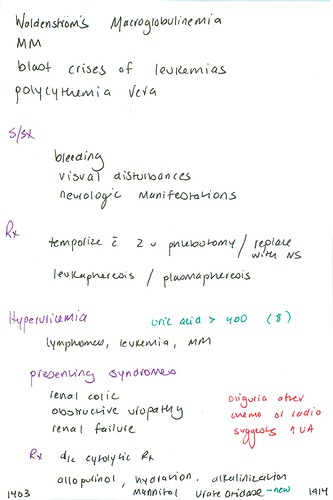 Waldenström's Macroglobulinemia
MM
blast crises of leukemias
polycythemia vera
S/sx
bleeding
visual disturbances
neurologic manifestations
Rx
temporize c̄ 2 u phlebotomy / replace with NS
leukapheresis / plasmapheresis
Hyperuricemia uric acid > 400 (8)
lymphomas, leukemia, MM
presenting syndromes
renal colic
obstructive uropathy
renal failure
oliguria after
chemo or radio
suggests ↑ UA
Rx d/c cytolytic Rx
allopurinol, hydration, alkalinization
mannitol urate oxidase - new
1403 1414